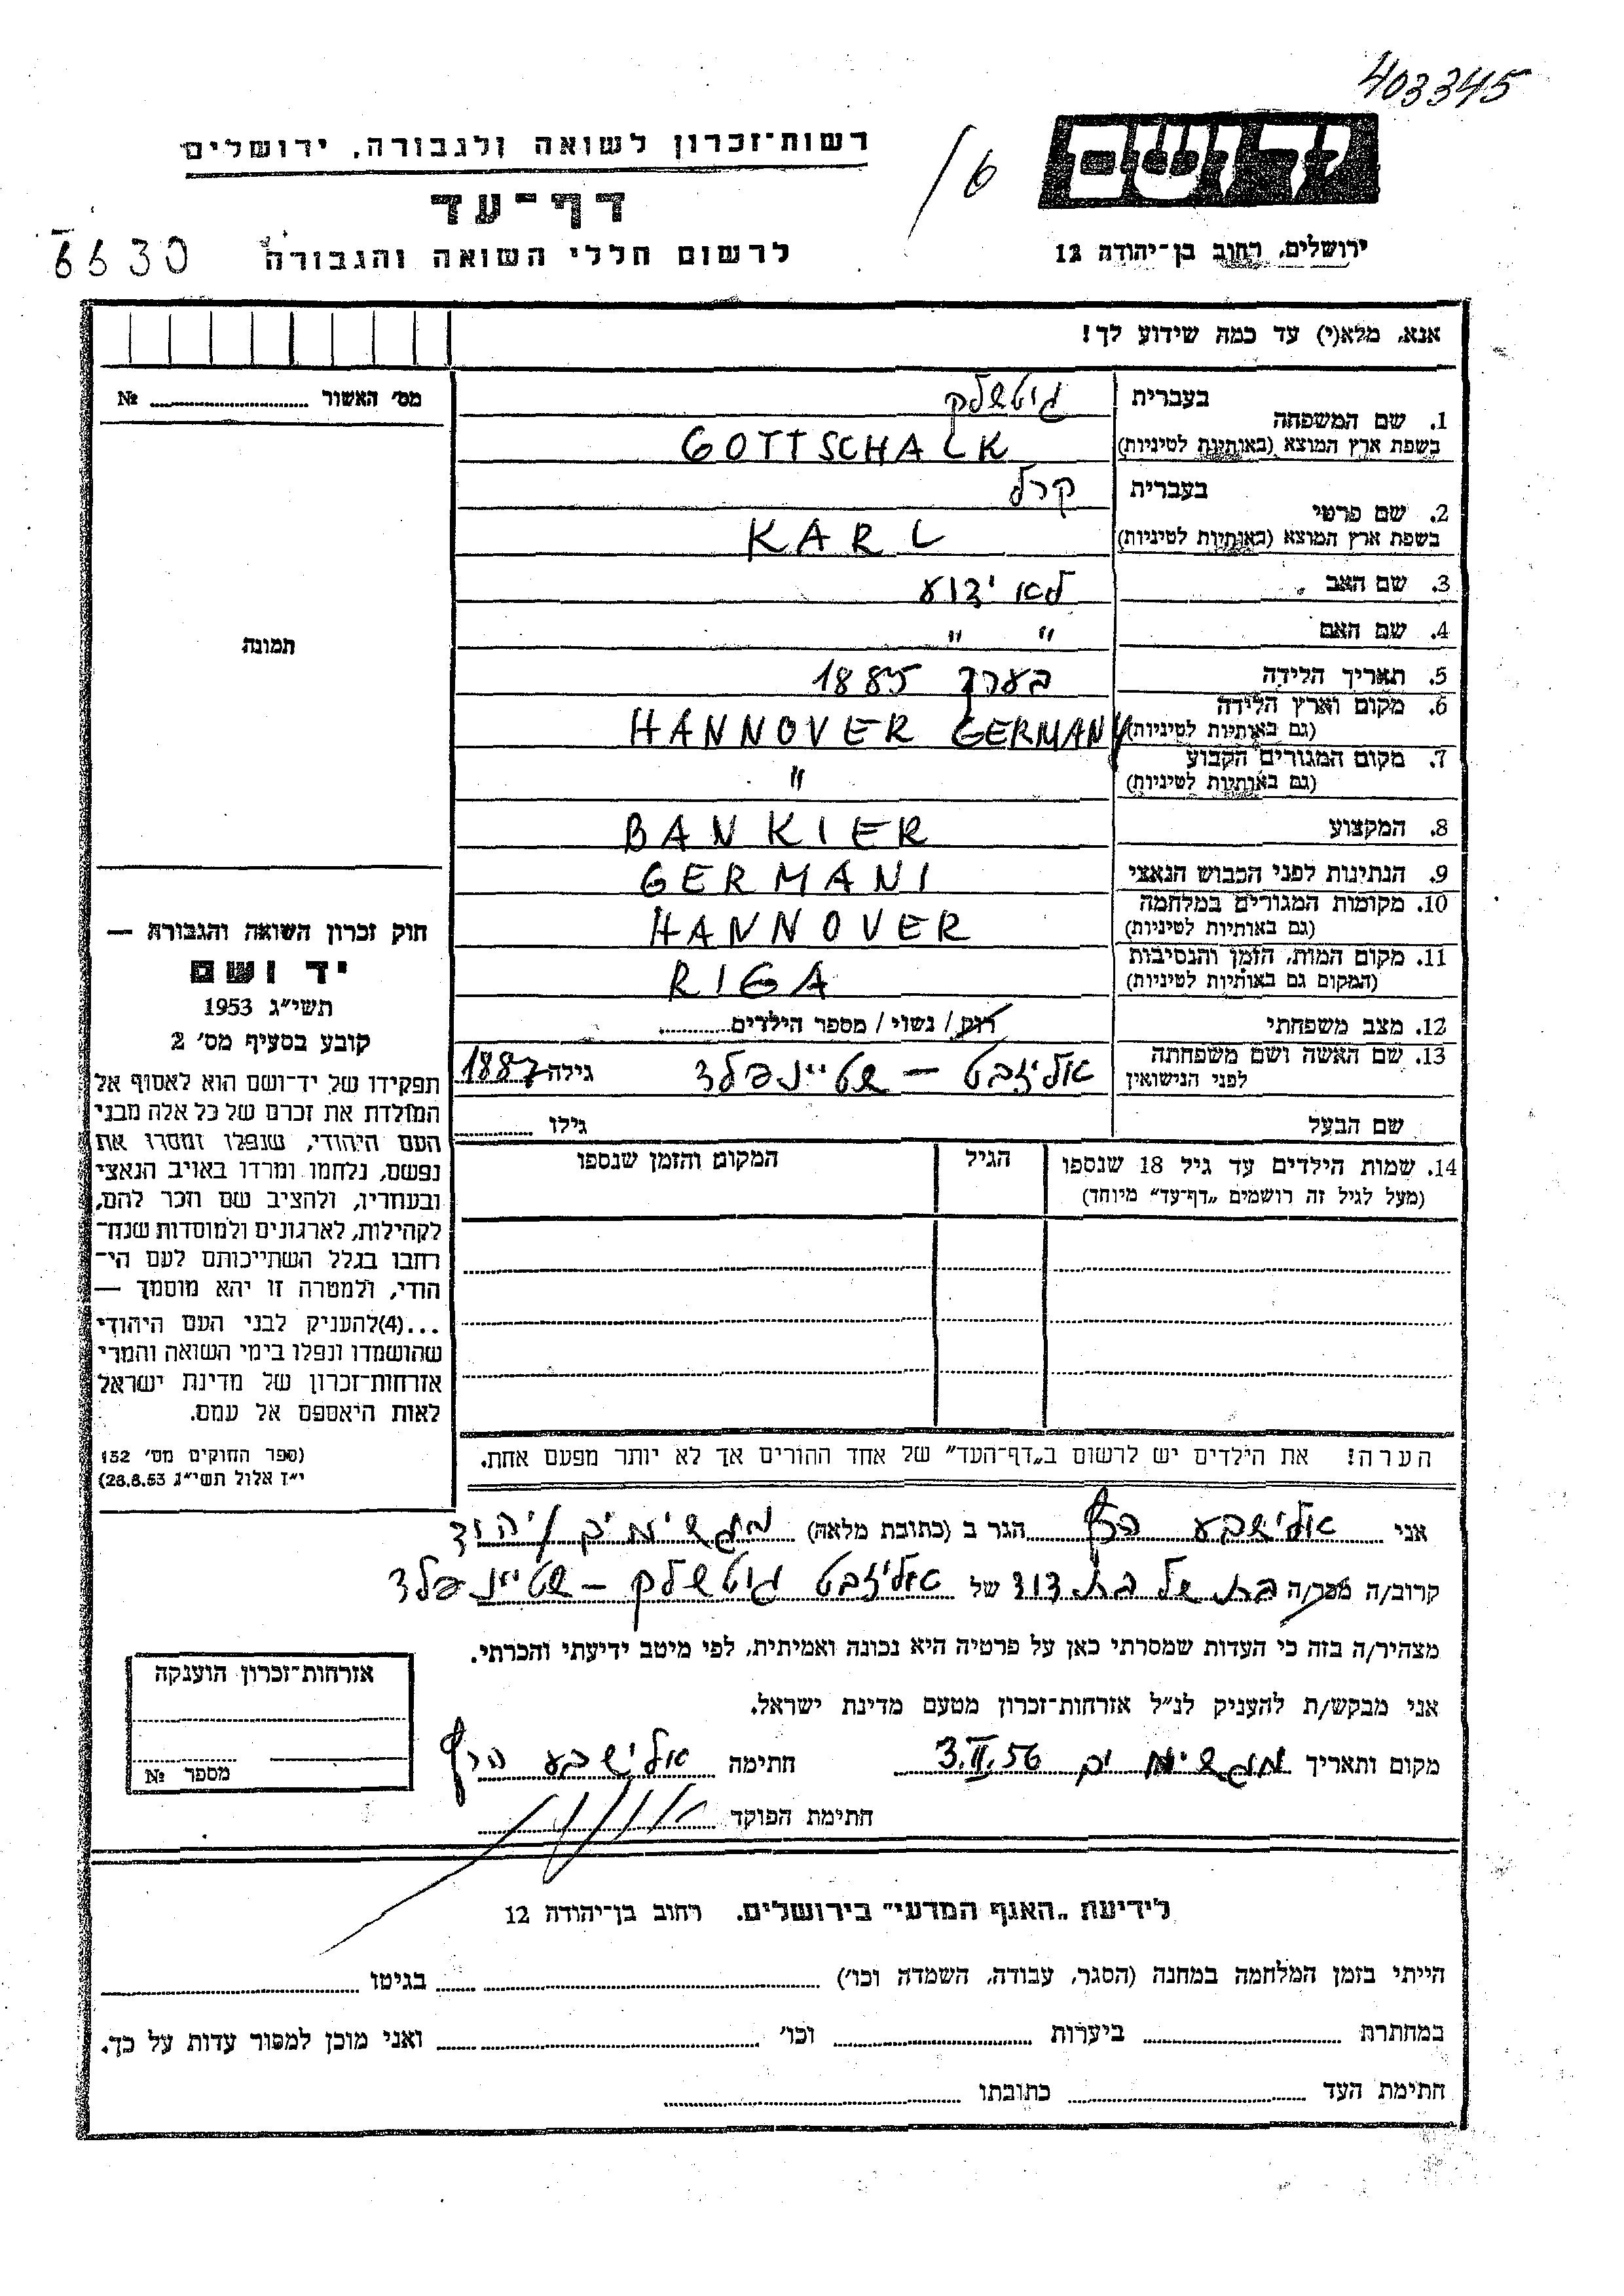 403345
ידושם
רשות־זכרון לשואה ולגבורה, ירושלים
16
דף־עד
ירושלים, רחוב בן־יהודה 12
לרשום חללי השואה והגבורה
6630
אנא, מלא(י) עד כמה שידוע לך!
מס׳ האשור № 
1. שם המשפחה בעברית גוטשלק
בשפת ארץ המוצא (באותיות לטיניות) GOTTSCHALK
2. שם פרטי בעברית קרל
בשפת ארץ המוצא (באותיות לטיניות) KARL
3. שם האב לא ידוע
4. שם האם " "
תמונה
5. תאריך הלידה בערך 1885
6. מקום וארץ הלידה (גם באותיות לטיניות) HANNOVER GERMANY
7. מקום המגורים הקבוע (גם באותיות לטיניות) "
8. המקצוע BANKIER
9. הנתינות לפני הכבוש הנאצי GERMANI
10. מקומות המגורים במלחמה (גם באותיות לטיניות) HANNOVER
11. מקום המות, הזמן והנסיבות (המקום גם באותיות לטיניות) RIGA
12. מצב משפחתי רווק / נשוי / מספר הילדים
13. שם האשה ושם משפחתה לפני הנישואין אליזבט – שטיינפלד גילה 1887
שם הבעל גילו
14. שמות הילדים עד גיל 18 שנספו הגיל המקום והזמן שנספו
(מעל לגיל זה רושמים „דף־עד״ מיוחד)
חוק זכרון השואה והגבורה —
יד ושם
תשי״ג 1953
קובע בסעיף מס׳ 2
תפקידו של יד־ושם הוא לאסוף אל
המולדת את זכרם של כל אלה מבני
העם היהודי, שנפלו ומסרו את
נפשם, נלחמו ומרדו באויב הנאצי
ובעוזריו, ולהציב שם וזכר להם,
לקהילות, לארגונים ולמוסדות שנח־
רחבו בגלל השתייכותם לעם הי־
הודי, ולמטרה זו יהא מוסמך —
...(4)להעניק לבני העם היהודי
שהושמדו ונפלו בימי השואה והמרי
אזרחות־זכרון של מדינת ישראל
לאות היאספם אל עמם.
(ספר החוקים מס׳ 132
י״ז אלול תשי״ג 28.8.53)
הערה! את הילדים יש לרשום ב„דף־העד״ של אחד ההורים אך לא יותר מפעם אחת.
אני אלישבע הרץ הגר ב (כתובת מלאה) מגשימים / יהוד
קרוב/ה מכר/ה בת של בת דוד של אליזבט גוטשלק – שטיינפלד
מצהיר/ה בזה כי העדות שמסרתי כאן על פרטיה היא נכונה ואמיתית, לפי מיטב ידיעתי והכרתי.
אני מבקש/ת להעניק לנ״ל אזרחות־זכרון מטעם מדינת ישראל.
מקום ותאריך מגשימים 3.II.56 חתימה אלישבע הרץ
חתימת הפוקד
אזרחות־זכרון הוענקה
מספר №
לידיעת „האגף המדעי״ בירושלים. רחוב בן־יהודה 12
הייתי בזמן המלחמה במחנה (הסגר, עבודה, השמדה וכו׳) בגיטו
במחתרת ביערות וכו׳ ואני מוכן למסור עדות על כך.
חתימת העד כתובתו